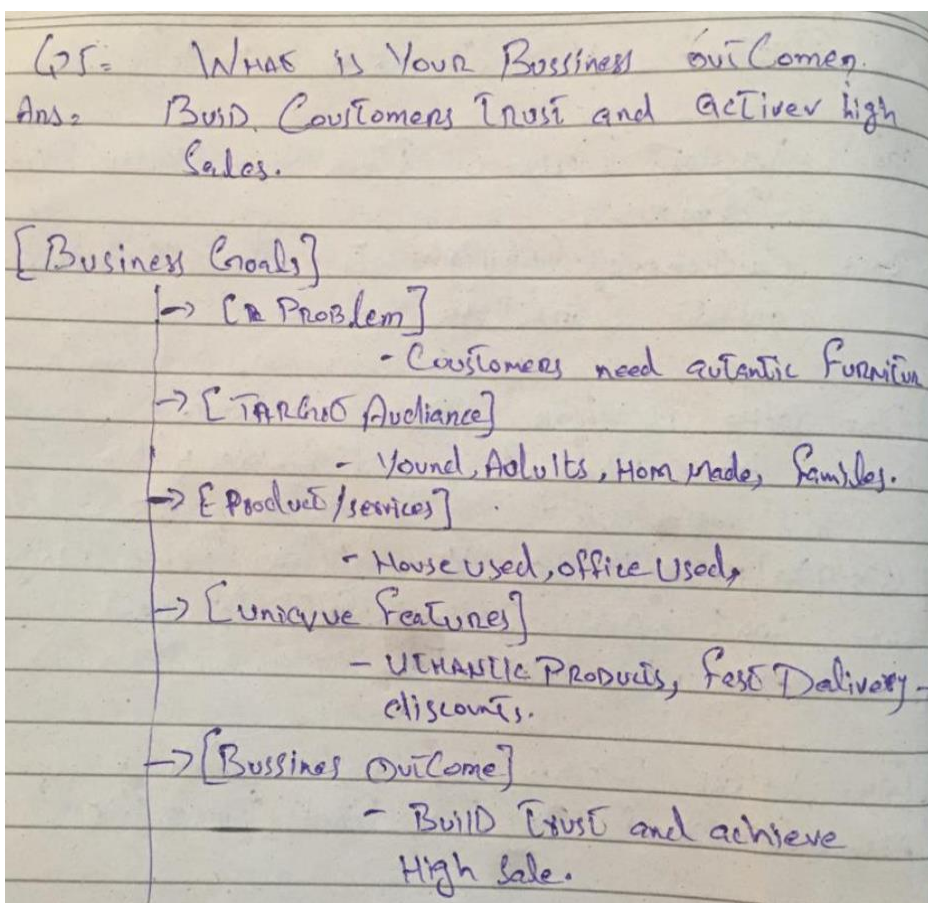 Q5= WHAT is Your Bussiness outComen.
Ans= BuiD Coustomers Trust and acTiver high
Sales.
[Business Goals]
-> [PROBlem]
- Coustomers need autantic FURNiTuR
-> [TARGET Audiance]
- Yound, Adults, Hom Made, Familes.
-> [Product/services]
- House used, office Used,
-> [unicque FeaTures]
- UTHANTIC PRODUCTS, fast Dalivery-
discounts.
-> [Bussines OutCome]
- BuilD Trust and achieve
High Sale.